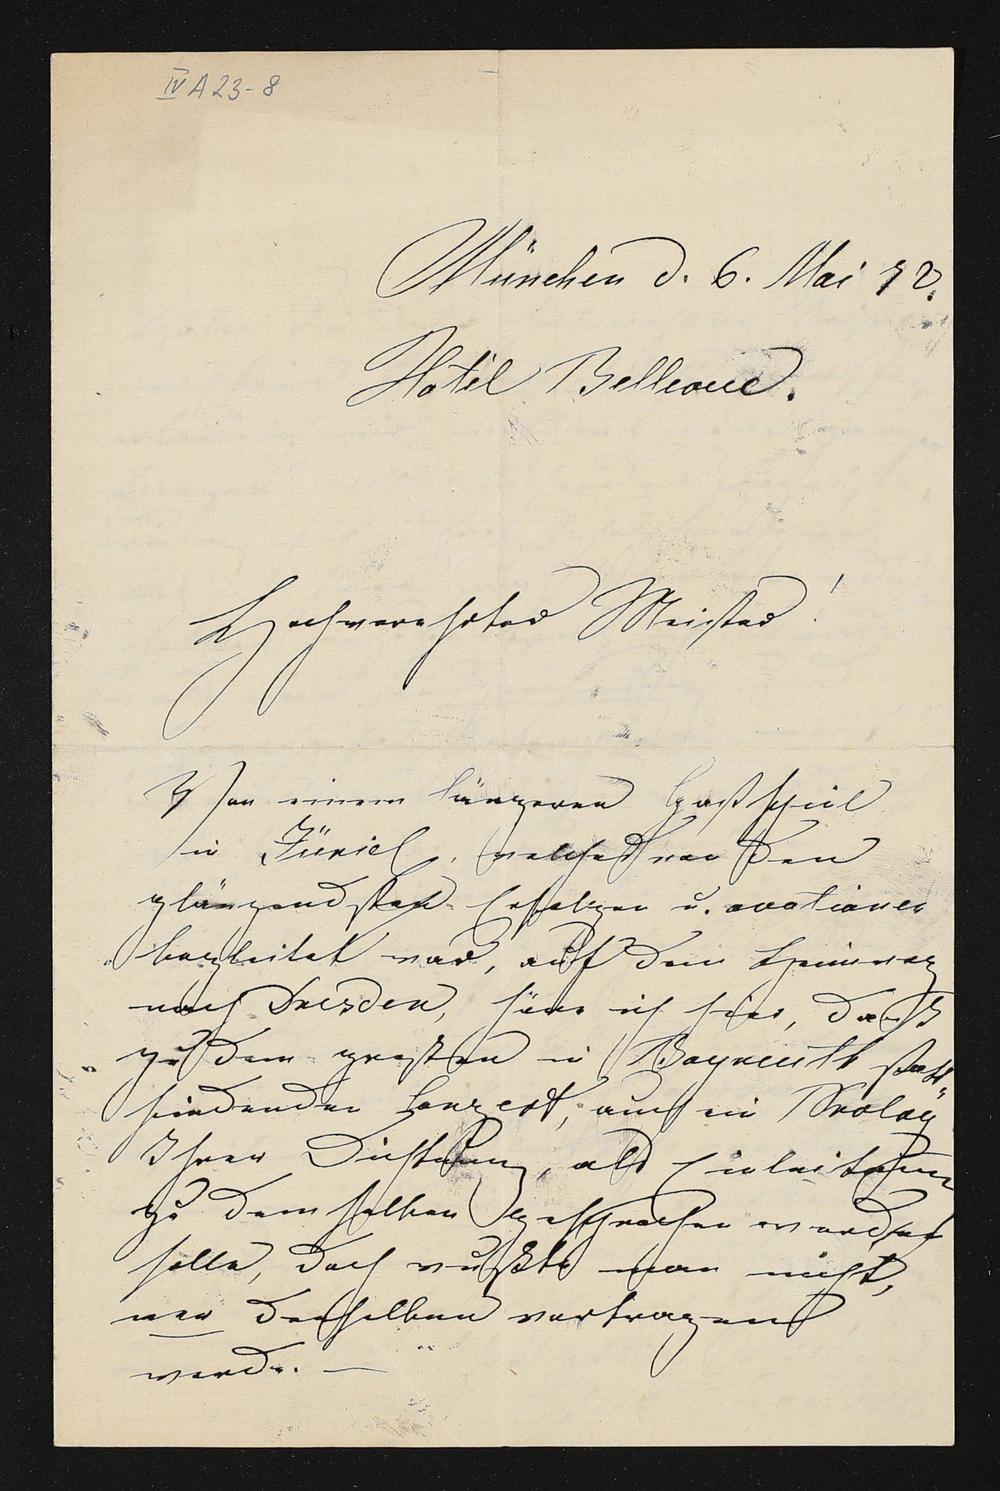 IV A 23-8
München d. 6. Mai 72.
Hotel Bellevue.
Hochverehrter Meister!
Von einem längeren Gastspiel
in Zürich, welches von den
glänzendsten Erfolgen u. ovationen
begleitet war, auf dem Heimweg
nach Dresden, höre ich hier, daß
zu dem großen in Bayreuth statt
findenden Conzert, auch ein Prolog
Ihrer Dichtung, als Einleitung
zu demselben gesprochen werden
solle, doch wußte man nicht,
wer denselben vortragen
werde. —